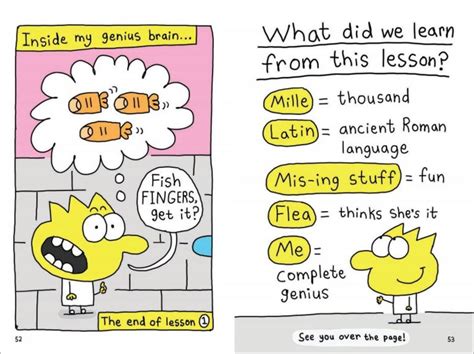 Inside my genius brain...
Fish
FINGERS,
get it?
The end of lesson 1
52
What did we learn
from this lesson?
Mille = thousand
Latin = ancient Roman
language
Mis-ing stuff = fun
Flea = thinks she's it
Me =
complete
genius
See you over the page!
53